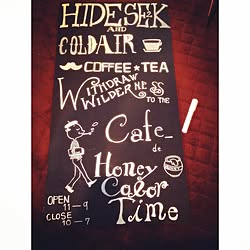 HIDESEK
AND
COLDAIR
COFFEE ★ TEA
WITHDRAW
WILDERNESS
TO THE
Cafe
de
Honey
Color
Time
OPEN
11-9
CLOSE
10-7